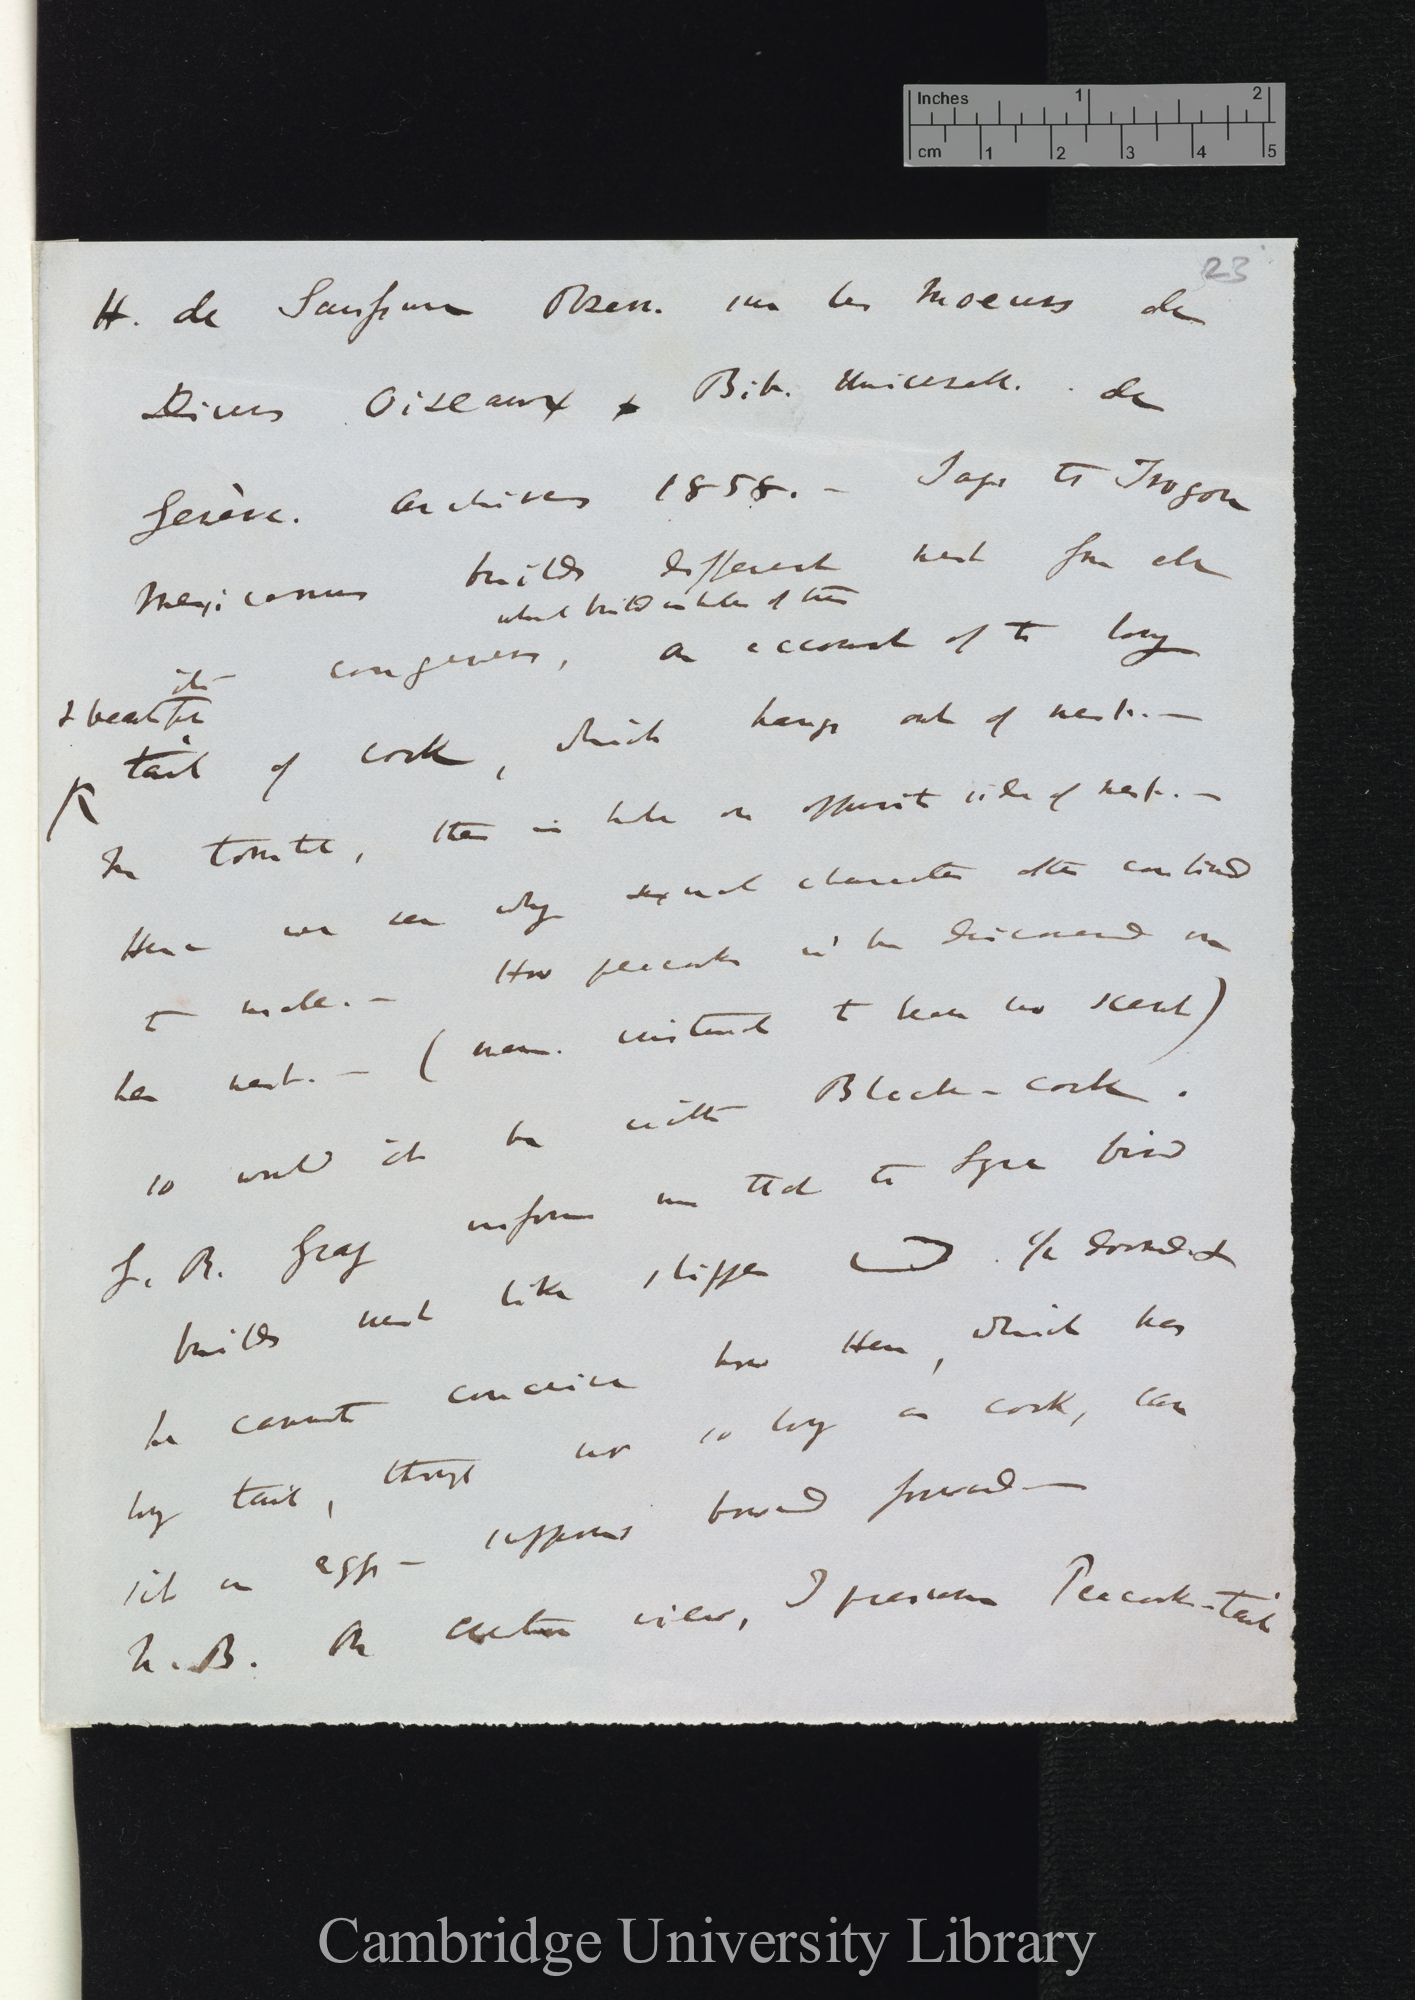 Inches 1 2
cm 1 2 3 4 5
23
H. de Saussure Obser. sur les Moeurs de
Divers Oiseaux Bib. Universelle. de
Genève. Archives 1858. — Says the Trogon
Mexicanus builds different nest from all
which build in holes of trees
its congeners, on account of the long
& beautiful
tail of cock, which hangs out of nest. —
In tomtit, there is hole on opposite side of nest. —
Here we see why sexual character often confined
to male. — How peacocks wd be discovered on
her nest. — (mem. instinct to have no scent)
so would it be with Black-cock.
G. R. Gray informs me that the Lyre bird
builds nest like slipper domed &
he cannot conceive how Hen, which has
long tail, though not so long as cock, can
sit on eggs — supposes turned forward —
N.B. On view, I presume Peacock-tail
Cambridge University Library